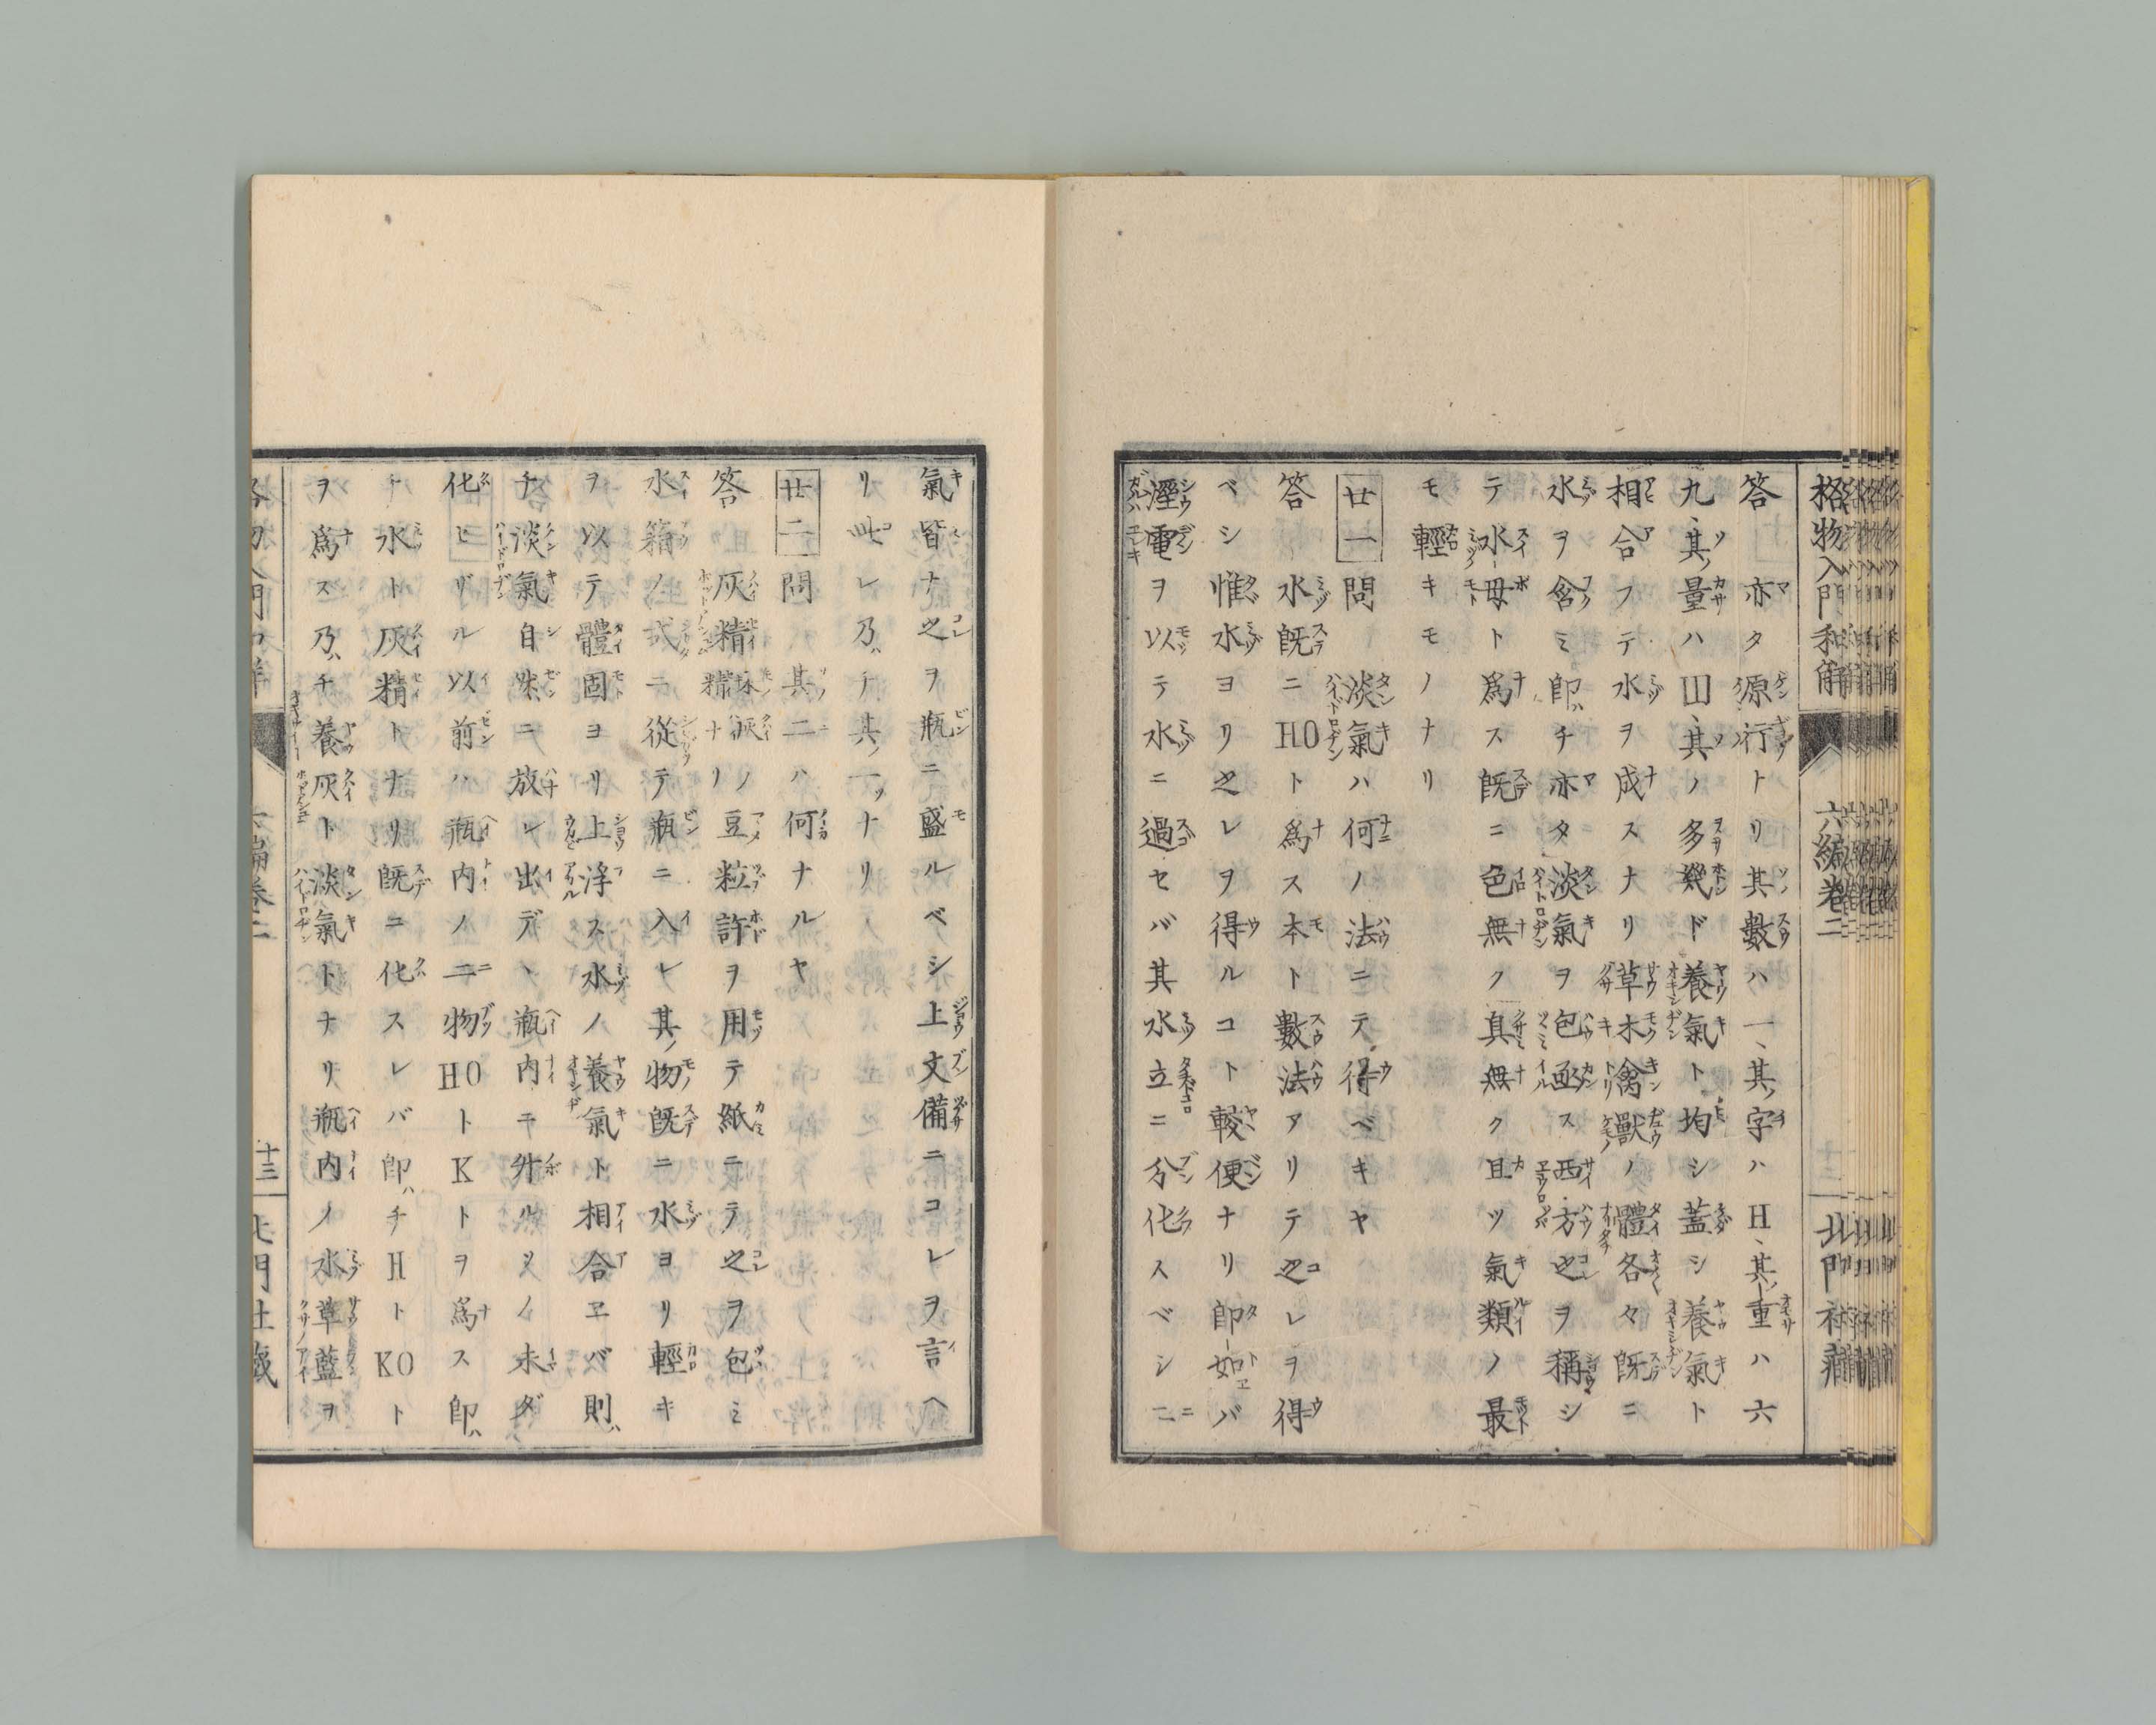 格物入門和解
六編卷二
北門社藏
答 亦タ源行トリ其數ハ一、其字ハH、其重ハ六
九、其量ハ山、其ノ多幾ド養氣ト均シ蓋シ養氣ト
相合フテ水ヲ成スナリ草木禽獸ノ體各々既ニ
水ヲ含ミ即チ亦タ淡氣ヲ包函ス西方之ヲ稱シ
テ水母ト爲ス既ニ色無ク臭無ク且ツ氣類ノ最
モ輕キモノナリ
廿一 問 淡氣ハ何ノ法ニテ得ベキヤ
答 水既ニHOト爲ス本ト數法アリテ之レヲ得
ベシ惟水ヨリ之レヲ得ルコト較便ナリ即如バ
溼電ヲ以テ水ニ過セバ其水立ニ分化スベシ二
氣皆ナ之ヲ瓶ニ盛ルベシ上文備ニコレヲ言ヘ
リ此レ乃チ其一ナリ
廿二 問 其二ハ何ナルヤ
答 灰精 ノ豆粒許ヲ用テ紙ニテ之ヲ包ミ
水箱ノ式ニ從テ瓶ニ入レ其物既ニ水ヨリ輕キ
ヲ以テ體固ヨリ上浮ス水ノ養氣ト相合ヱバ則
チ淡氣自然ニ放レ出デ、瓶内ニ升ル 未ダ
化セザル以前ハ瓶内ノ二物HOトKトヲ爲ス即
チ水ト灰精トナリ既ニ化スレバ即チHトKOト
ヲ爲ス乃チ養灰ト淡氣トナリ瓶内ノ水草藍ヲ
十三
北門社藏